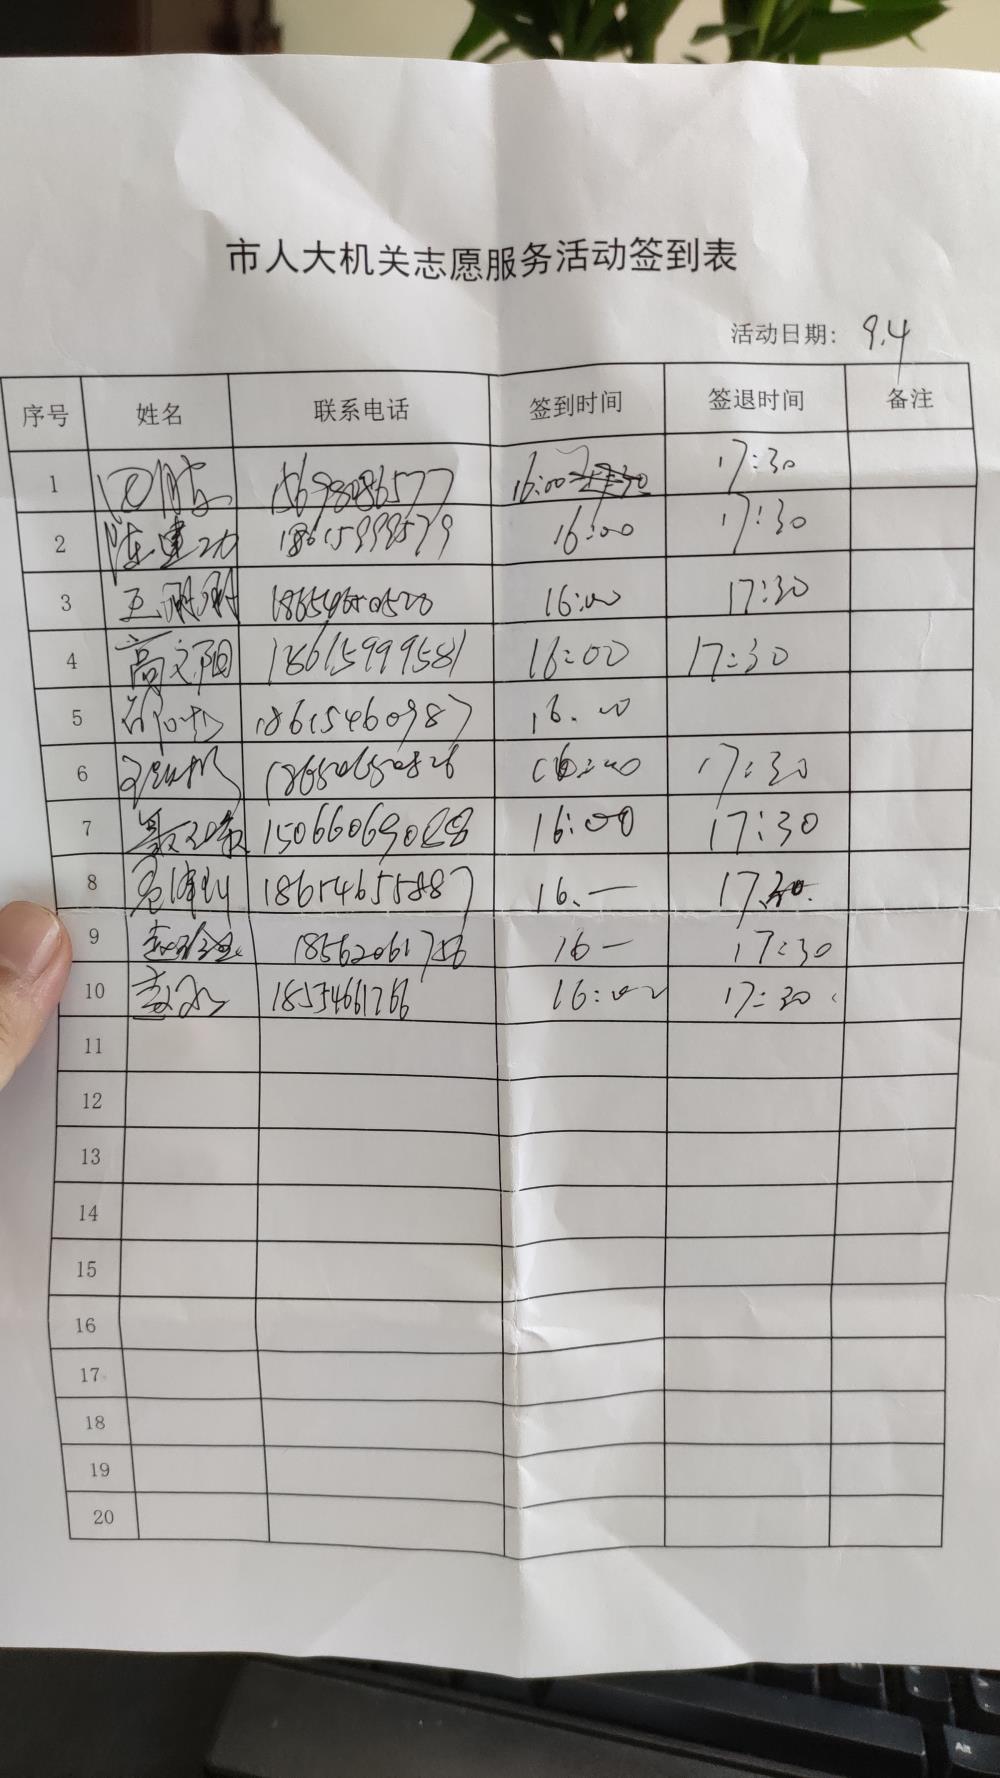 市人大机关志愿服务活动签到表
活动日期: 9.4
序号 姓名 联系电话 签到时间 签退时间 备注
1 15698086577 16:00 17:30
2 陈建功 18615999579 16:00 17:30
3 王刚刚 18654650520 16:00 17:30
4 高文阳 18615999581 16:00 17:30
5 18615460987 16.00
6 18650650826 16:00 17:30
7 15066069088 16:00 17:30
8 18654655887 16.— 17.30.
9 18562061756 16— 17:30
10 18554661766 16:00 17:30
11
12
13
14
15
16
17
18
19
20
Alt